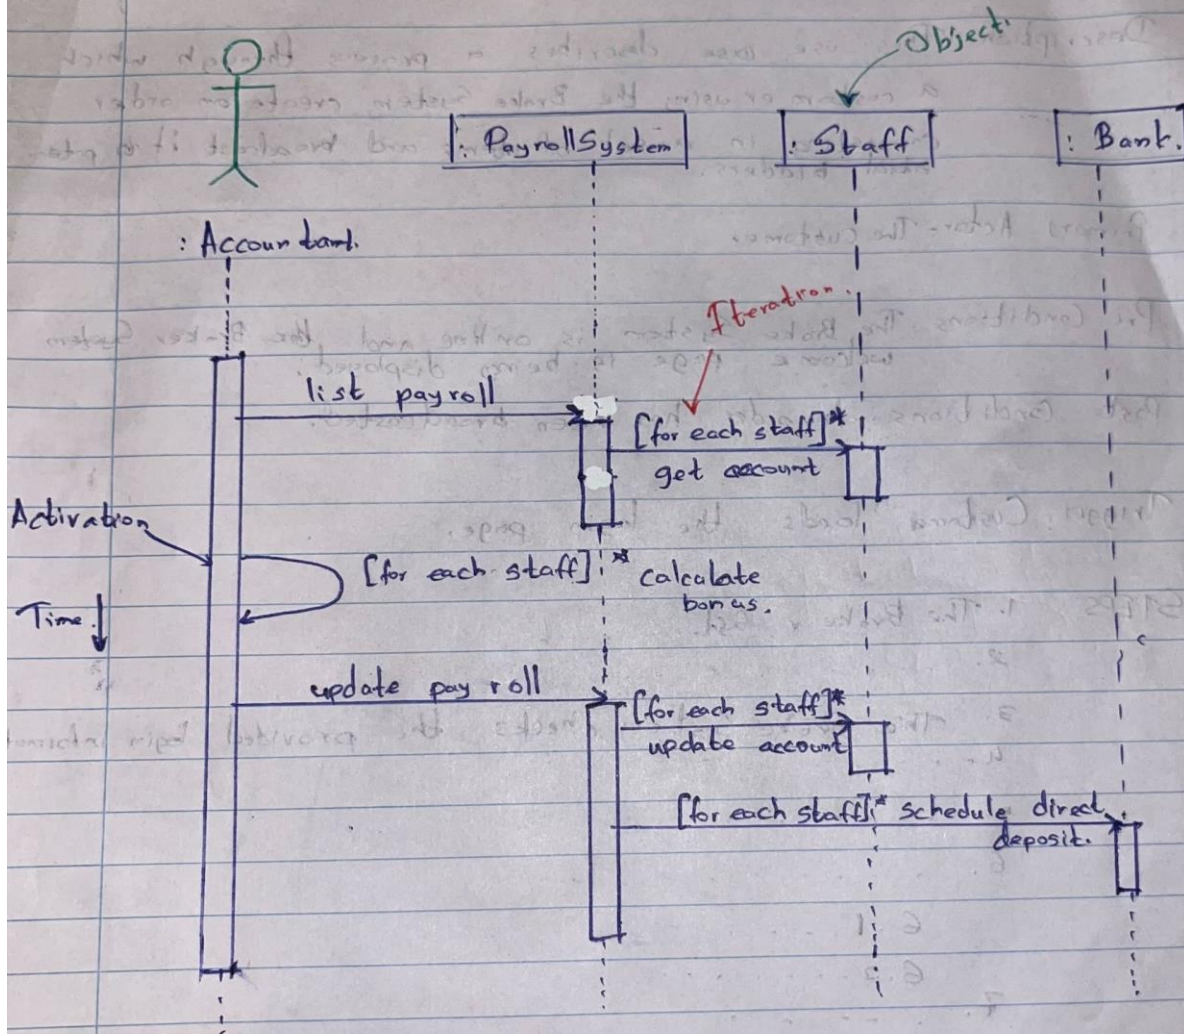 Object.
: PayrollSystem
: Staff
: Bank.
: Accountant.
Iteration.
list payroll
[for each staff]*
get account
Activation
[for each staff] * calculate
bonus.
Time
update payroll
[for each staff]*
update account
[for each staff] * schedule direct
deposit.